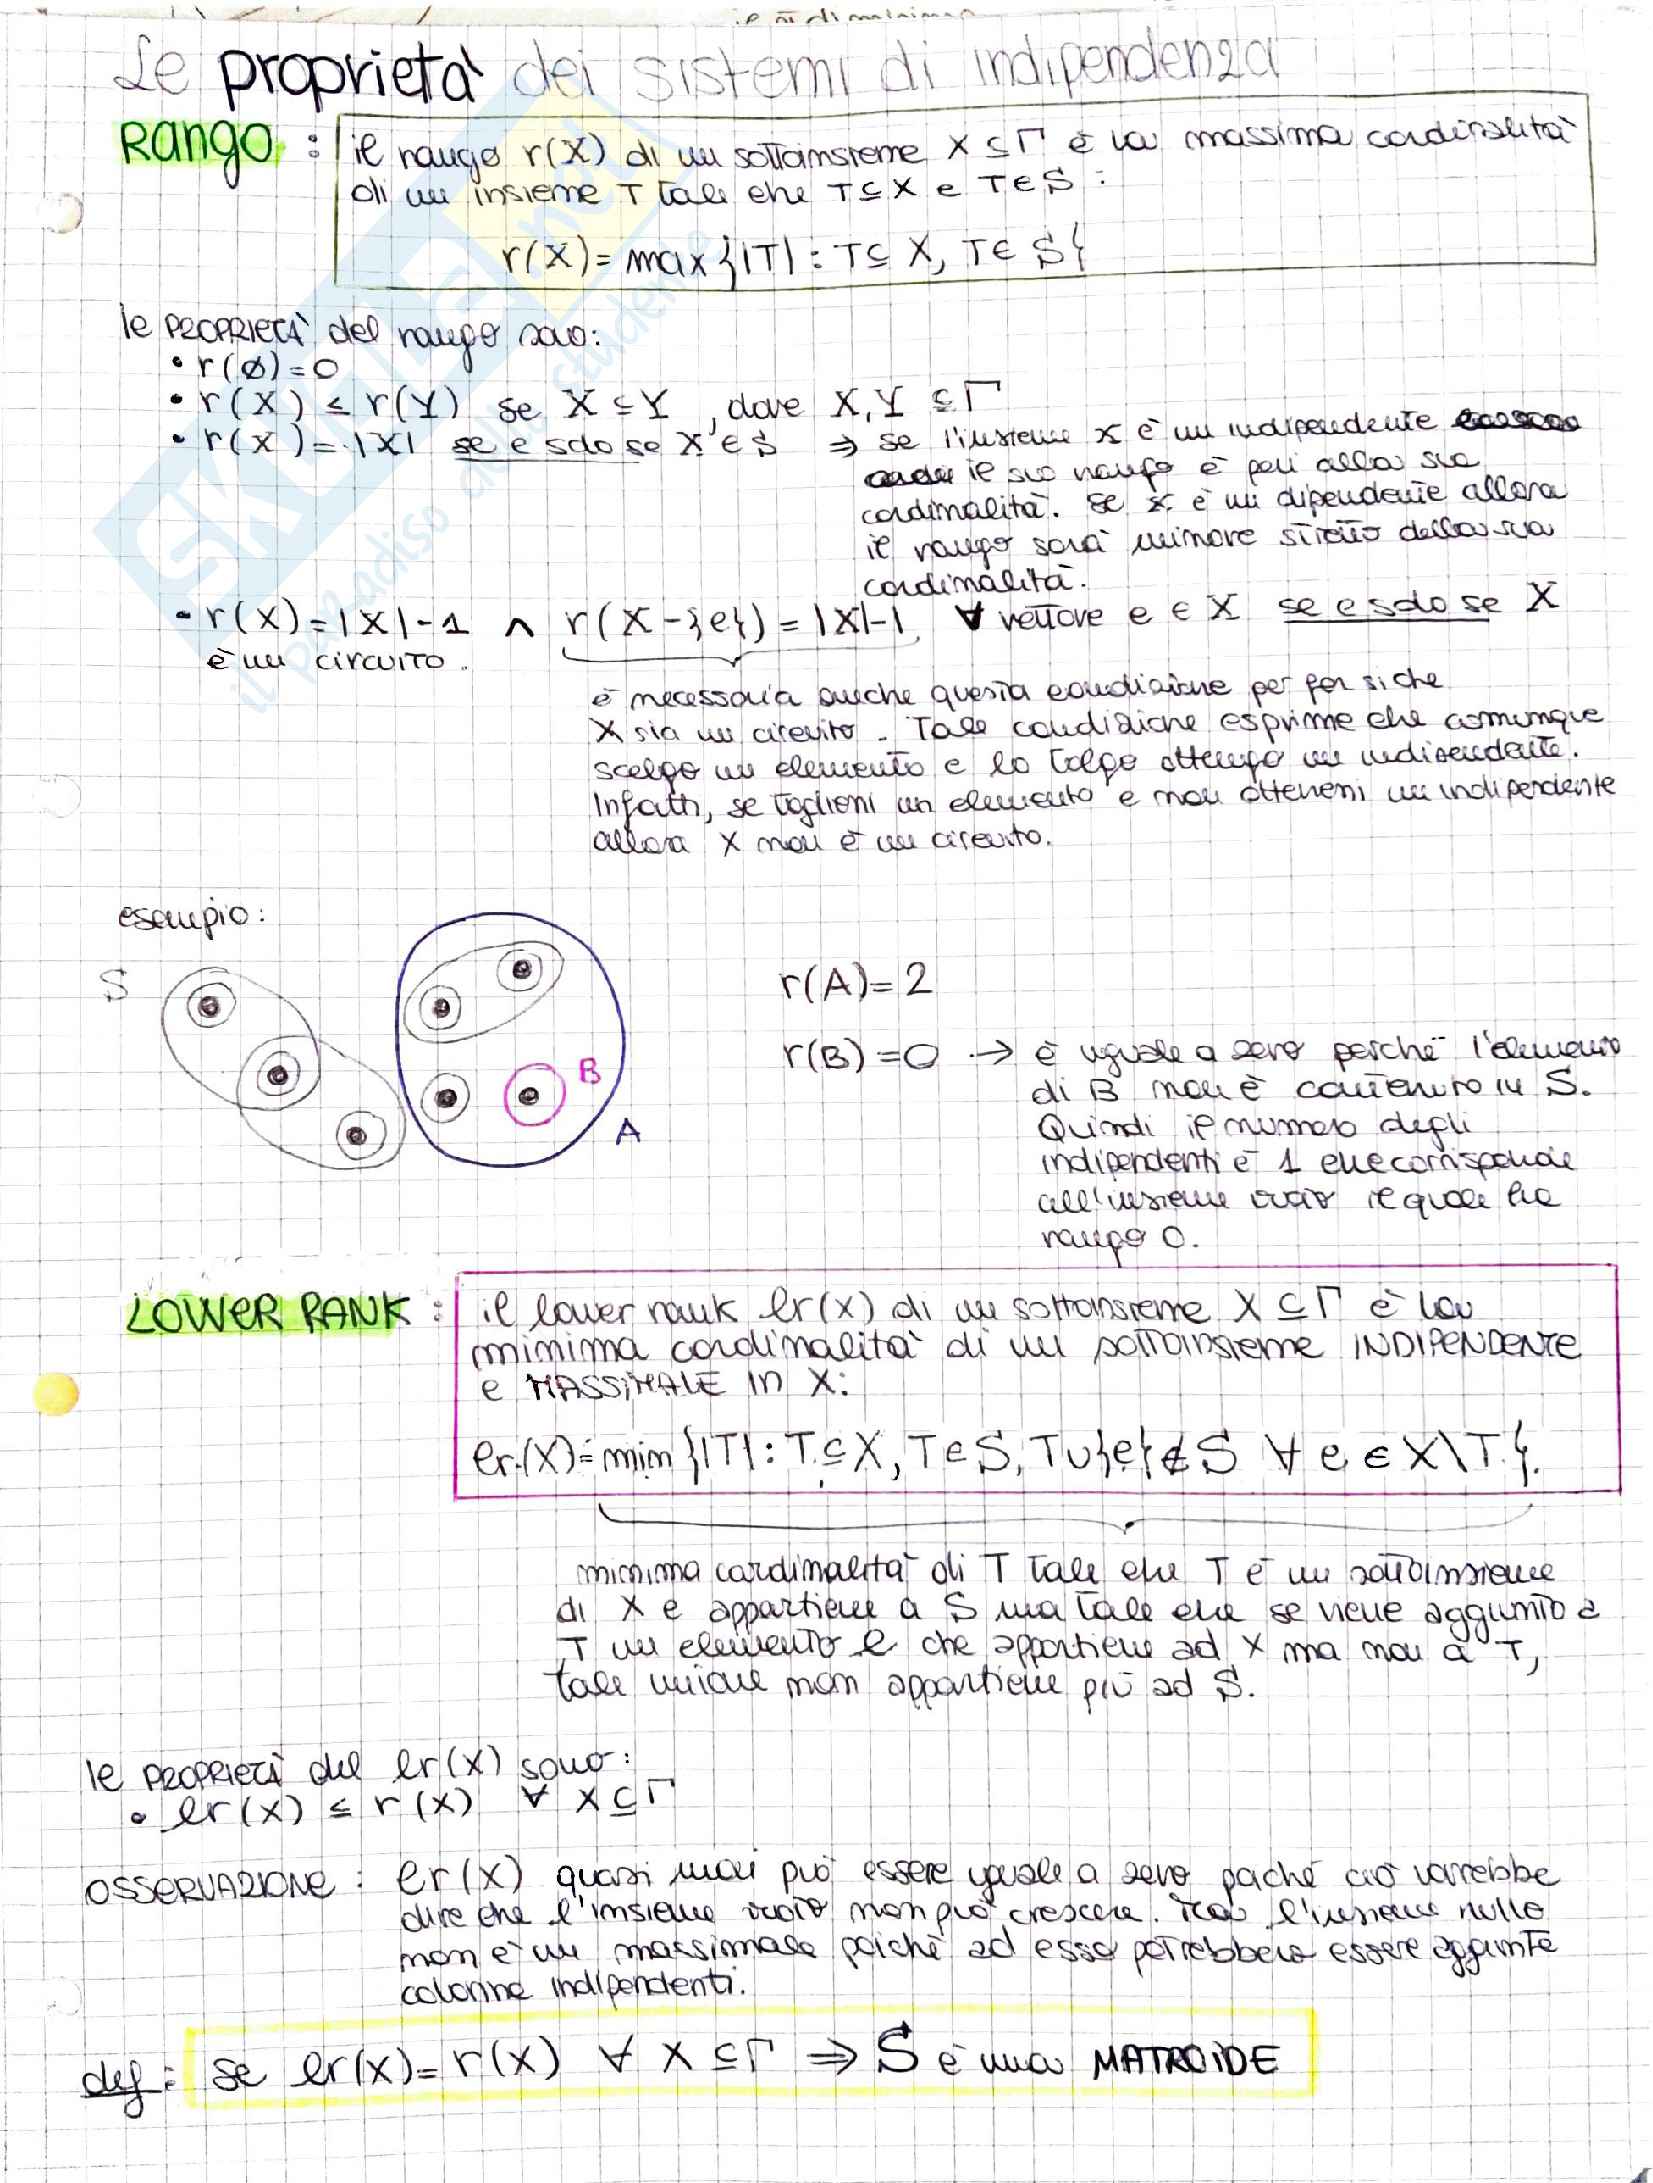 Le proprietà dei sistemi di indipendenza
Rango : il rango r(X) di un sottoinsieme X ⊆ Γ è la massima cardinalità
di un insieme T tale che T ⊆ X e T ∈ S :
r(X) = max {|T| : T ⊆ X, T ∈ S}
le PROPRIETÀ del rango sono:
• r(ø) = 0
• r(X) ≤ r(Y) se X ⊆ Y, dove X, Y ⊆ Γ
• r(X) = |X| se e solo se X ∈ S ⇒ se l'insieme X è un indipendente
il suo rango è pari alla sua
cardinalità. Se X è un dipendente allora
il rango sarà minore stretto della sua
cardinalità.
• r(X) = |X| - 1 ∧ r(X - {e}) = |X| - 1 ∀ vettore e ∈ X se e solo se X
è un circuito.
è necessaria anche questa condizione per far si che
X sia un circuito. Tale condizione esprime che comunque
scelgo un elemento e lo tolgo ottengo un indipendente.
Infatti, se togliessi un elemento e non ottenessi un indipendente
allora X non è un circuito.
esempio:
S
B
A
r(A) = 2
r(B) = 0 → è uguale a zero perché l'elemento
di B non è contenuto in S.
Quindi il numero degli
indipendenti è 1 che corrisponde
all'insieme vuoto il quale ha
rango 0.
LOWER RANK : il lower rank lr(X) di un sottoinsieme X ⊆ Γ è la
minima cardinalità di un sottoinsieme INDIPENDENTE
e MASSIMALE in X:
lr(X) = min {|T| : T ⊆ X, T ∈ S, T ∪ {e} ∉ S ∀ e ∈ X \ T}.
minima cardinalità di T tale che T è un sottoinsieme
di X e appartiene a S ma tale che se viene aggiunto a
T un elemento e che appartiene ad X ma non a T,
tale unione non appartiene più ad S.
le PROPRIETÀ del lr(X) sono:
• lr(X) ≤ r(X) ∀ X ⊆ Γ
OSSERVAZIONE : lr(X) quasi mai può essere uguale a zero perché ciò vorrebbe
dire che l'insieme vuoto non può crescere. l'insieme nullo
non è un massimale poiché ad esso potrebbero essere aggiunte
colonne indipendenti.
def : se lr(X) = r(X) ∀ X ⊆ Γ ⇒ S è una MATROIDE
SKUOLA.net
il paradiso dello studente